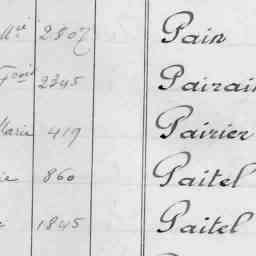 Mce 2807 Pain
Fçois 2345 Pairai
Marie 419 Pairier
ie 860 Paitel
e 1845 Paitel